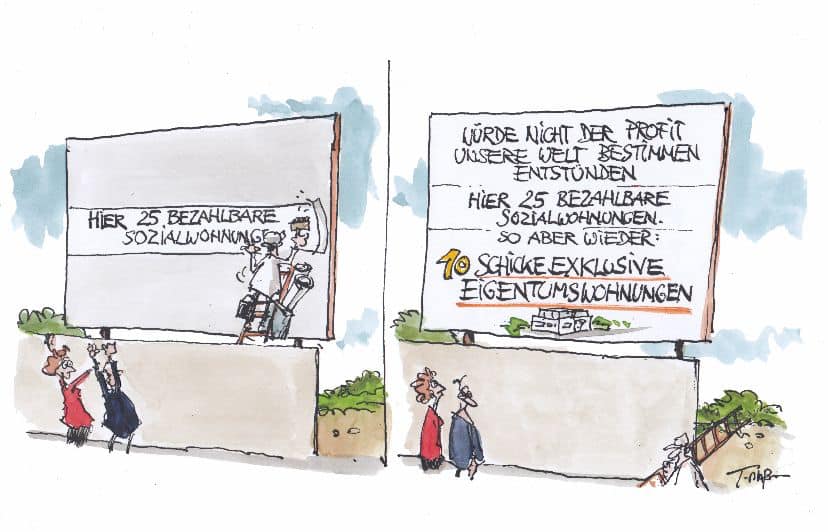 HIER 25 BEZAHLBARE
SOZIALWOHNUNGE
WÜRDE NICHT DER PROFIT
UNSERE WELT BESTIMMEN
ENTSTÜNDEN
HIER 25 BEZAHLBARE
SOZIALWOHNUNGEN.
SO ABER WIEDER:
10 SCHICKE EXKLUSIVE
EIGENTUMSWOHNUNGEN